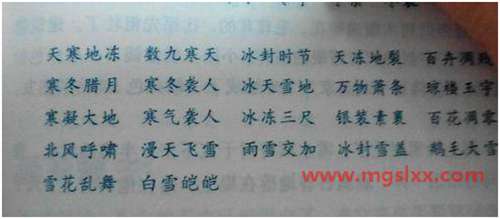 天寒地冻 数九寒天 冰封时节 天冻地裂 百卉凋残
寒冬腊月 寒冬袭人 冰天雪地 万物萧条 琼楼玉宇
寒凝大地 寒气袭人 冰冻三尺 银装素裹 百花凋零
北风呼啸 漫天飞雪 雨雪交加 冰封雪盖 鹅毛大雪
www.mgslxx.com
雪花乱舞 白雪皑皑